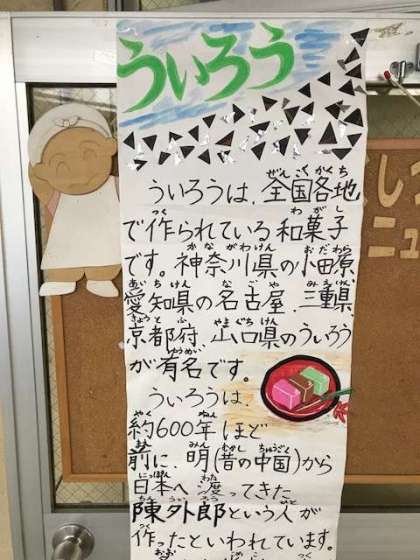 ういろう
ういろうは、全国各地
で作られている和菓子
です。神奈川県の小田原、
愛知県の名古屋、三重県、
京都府、山口県のういろう
が有名です。
ういろうは、
約600年ほど
前に、明(昔の中国)から
日本へ渡ってきた
陳外郎という人が
作ったといわれています。